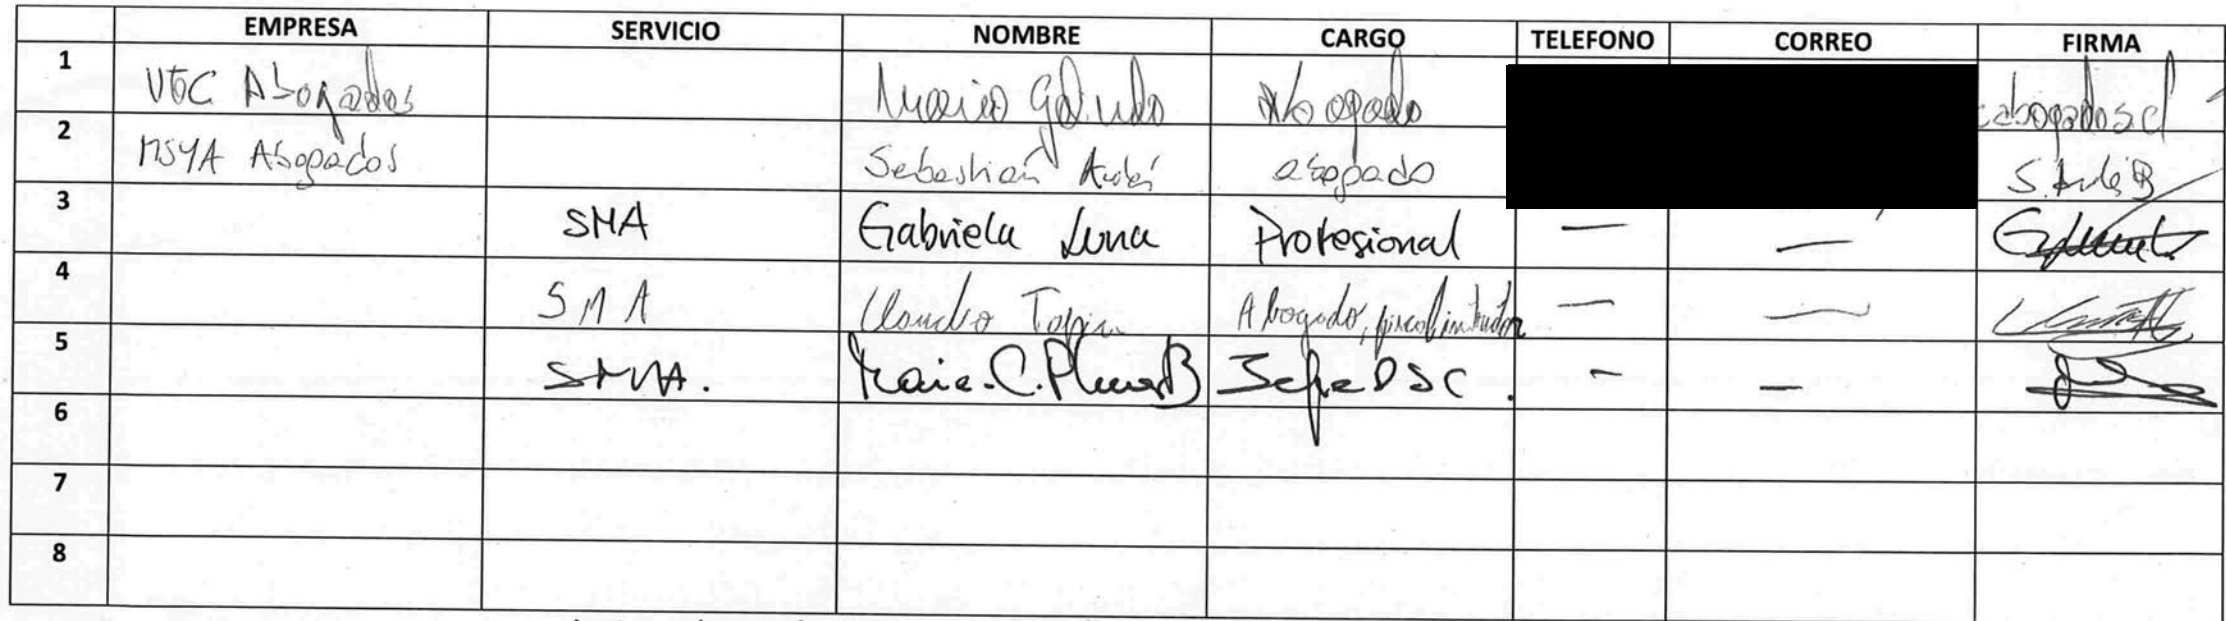 EMPRESA SERVICIO NOMBRE CARGO TELEFONO CORREO FIRMA
1 VGC Abogados Mario Galindo Abogado cabogados.cl
2 MSYA Abogados Sebastián Avilés abogado S. Avilés B
3 SMA Gabriela Luna Profesional — —
4 SMA Claudio Tapia Abogado, fiscal instructor — —
5 SMA. Marie. C. Jefe DSC. - -
6
7
8